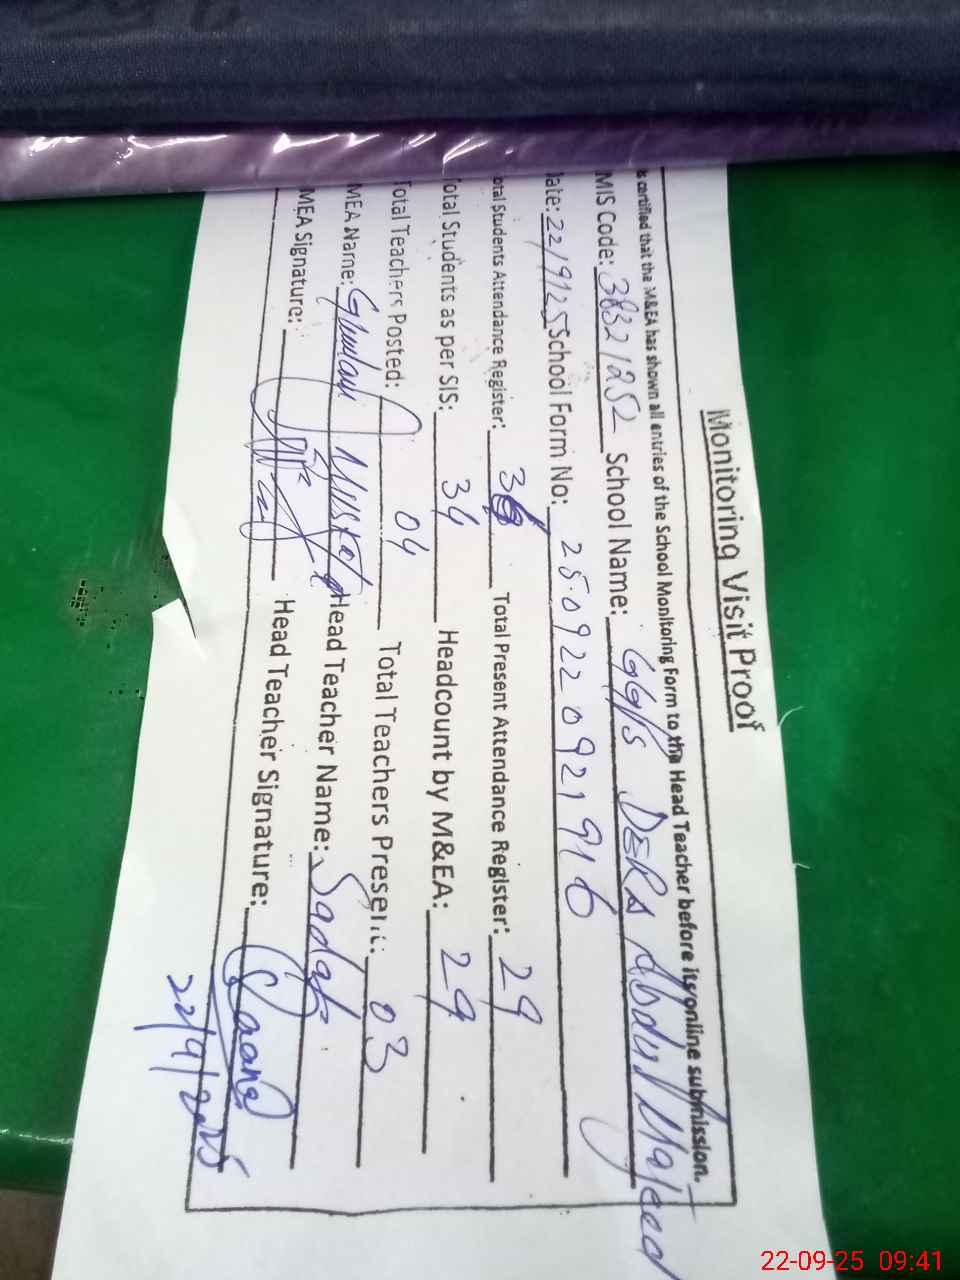 Monitoring Visit Proof
is certified that the M&EA has shown all entries of the School Monitoring Form to the Head Teacher before its online submission.
MIS Code: 38321252 School Name: GG/S DERA Abdul Majeed
Date: 22/9/25 School Form No: 2509220921916
otal Students Attendance Register: Total Present Attendance Register: 29
otal Students as per SIS: 34 Headcount by M&EA: 29
Total Teachers Posted: 04 Total Teachers Present: 03
MEA Name: Ghulam Head Teacher Name: Sadaf
MEA Signature: Head Teacher Signature:
22/9/2025
22-09-25 09:41